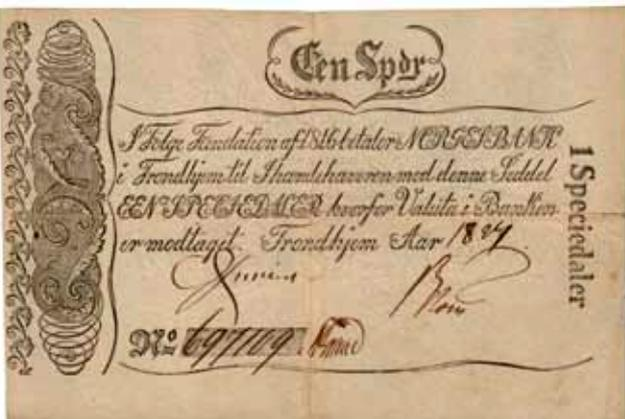 Een Spdr
I Følge Fundation af 1816 betaler NORGES BANK
i Trondhjem til Ihændehaveren mod denne Seddel
EEN SPECIEDALER hvorfor Valuta i Banken
er modtaget. Trondhjem Aar
No 697109
1 Speciedaler